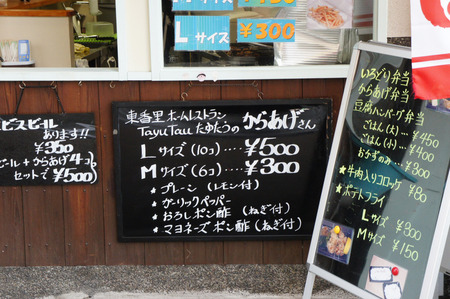 Lサイズ ¥300
ビスビール
あります!!
¥350
ビール+からあげ4コ
セットで ¥500
東番里 ホームレストラン
TayuTau たゆたうの からあげさん
Lサイズ(10コ)‥‥¥500
Mサイズ(6コ)‥‥¥300
★プレーン(レモン付)
★ガーリックペッパー
★おろしポン酢(ねぎ付)
★マヨネーズポン酢(ねぎ付)
いろどり弁当
からあげ弁当
豆腐ハンバーグ弁当
ごはん(大) ¥450
ごはん(小) ¥400
おかずのみ ¥300
★牛肉入りコロッケ ¥80
★ポテトフライ
Lサイズ ¥300
Mサイズ ¥150